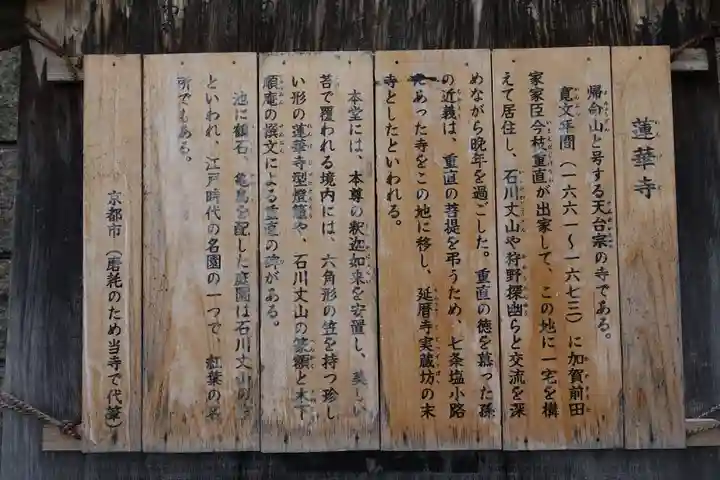 蓮華寺
帰命山と号する天台宗の寺である。
寛文年間（一六六一～一六七三）に加賀前田
家家臣今枝重直が出家して、この地に一宅を構
えて居住し、石川丈山や狩野探幽らと交流を深
めながら晩年を過ごした。重直の徳を慕った孫
の近義は、重直の菩提を弔うため、七条塩小路
にあった寺をこの地に移し、延暦寺実蔵坊の末
寺としたといわれる。
本堂には、本尊の釈迦如来を安置し、美しい
苔で覆われる境内には、六角形の笠を持つ珍し
い形の蓮華寺型燈籠や、石川丈山の篆額と木下
順庵の撰文による重直の碑がある。
池に鶴石、亀島を配した庭園は石川丈山の
といわれ、江戸時代の名園の一つで、紅葉の名
所でもある。
京都市（磨耗のため当寺で代筆）